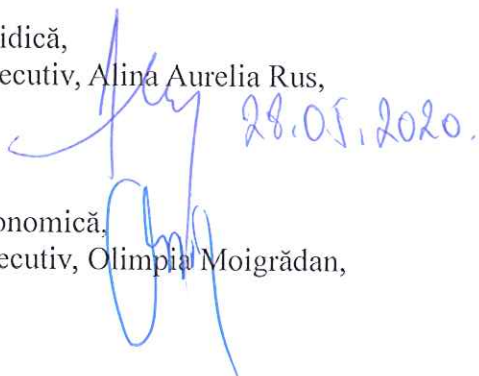 idică,
ecutiv, Alina Aurelia Rus,
28.05.2020.
onomică,
ecutiv, Olimpia Moigrădan,